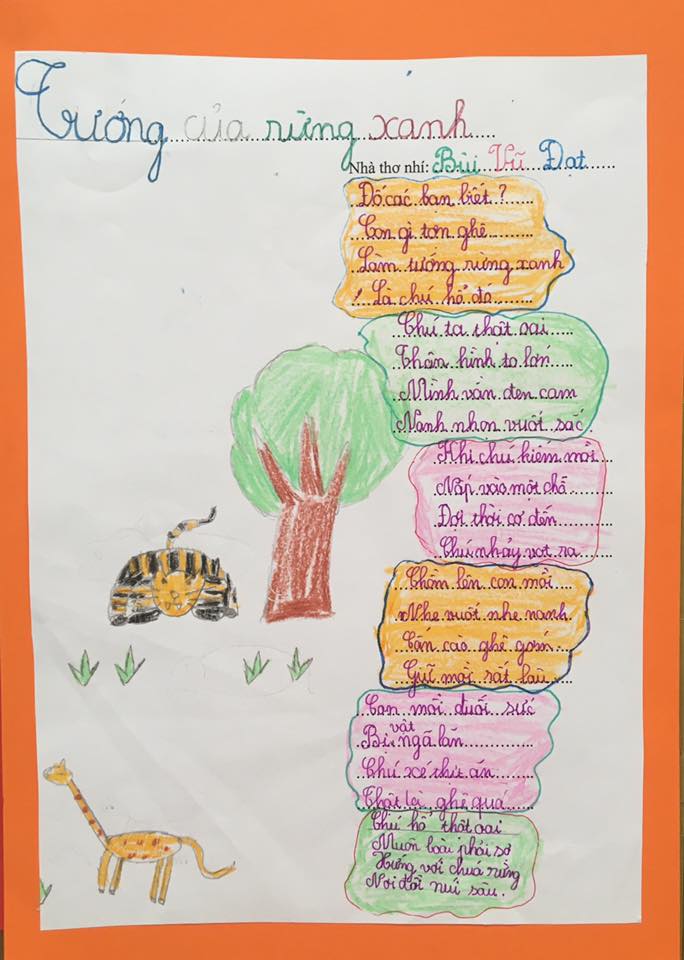 Tướng của rừng xanh
Nhà thơ nhí: Bùi Vũ Đạt
Đố các bạn biết?
Con gì tợn ghê
Làm tướng rừng xanh
! Là chú hổ đó
Chú ta thật oai
Thân hình to lớn
Mình vằn đen cam
Nanh nhọn vuốt sắc
Khi chú kiếm mồi
Nấp vào một chỗ
Đợi thời cơ đến
Chú nhảy vọt ra
Chồm lên con mồi
Nhe vuốt nhe nanh
Cấn cào ghê gớm
Giữ mồi rất lâu
Con mồi đuối sức
Bị vật ngã lăn
Chú xé thịt ăn
Thật là ghê quá
Chú hổ thật oai
Muôn loài phải sợ
Xưng với chuá rừng
Nơi đồi núi sâu.